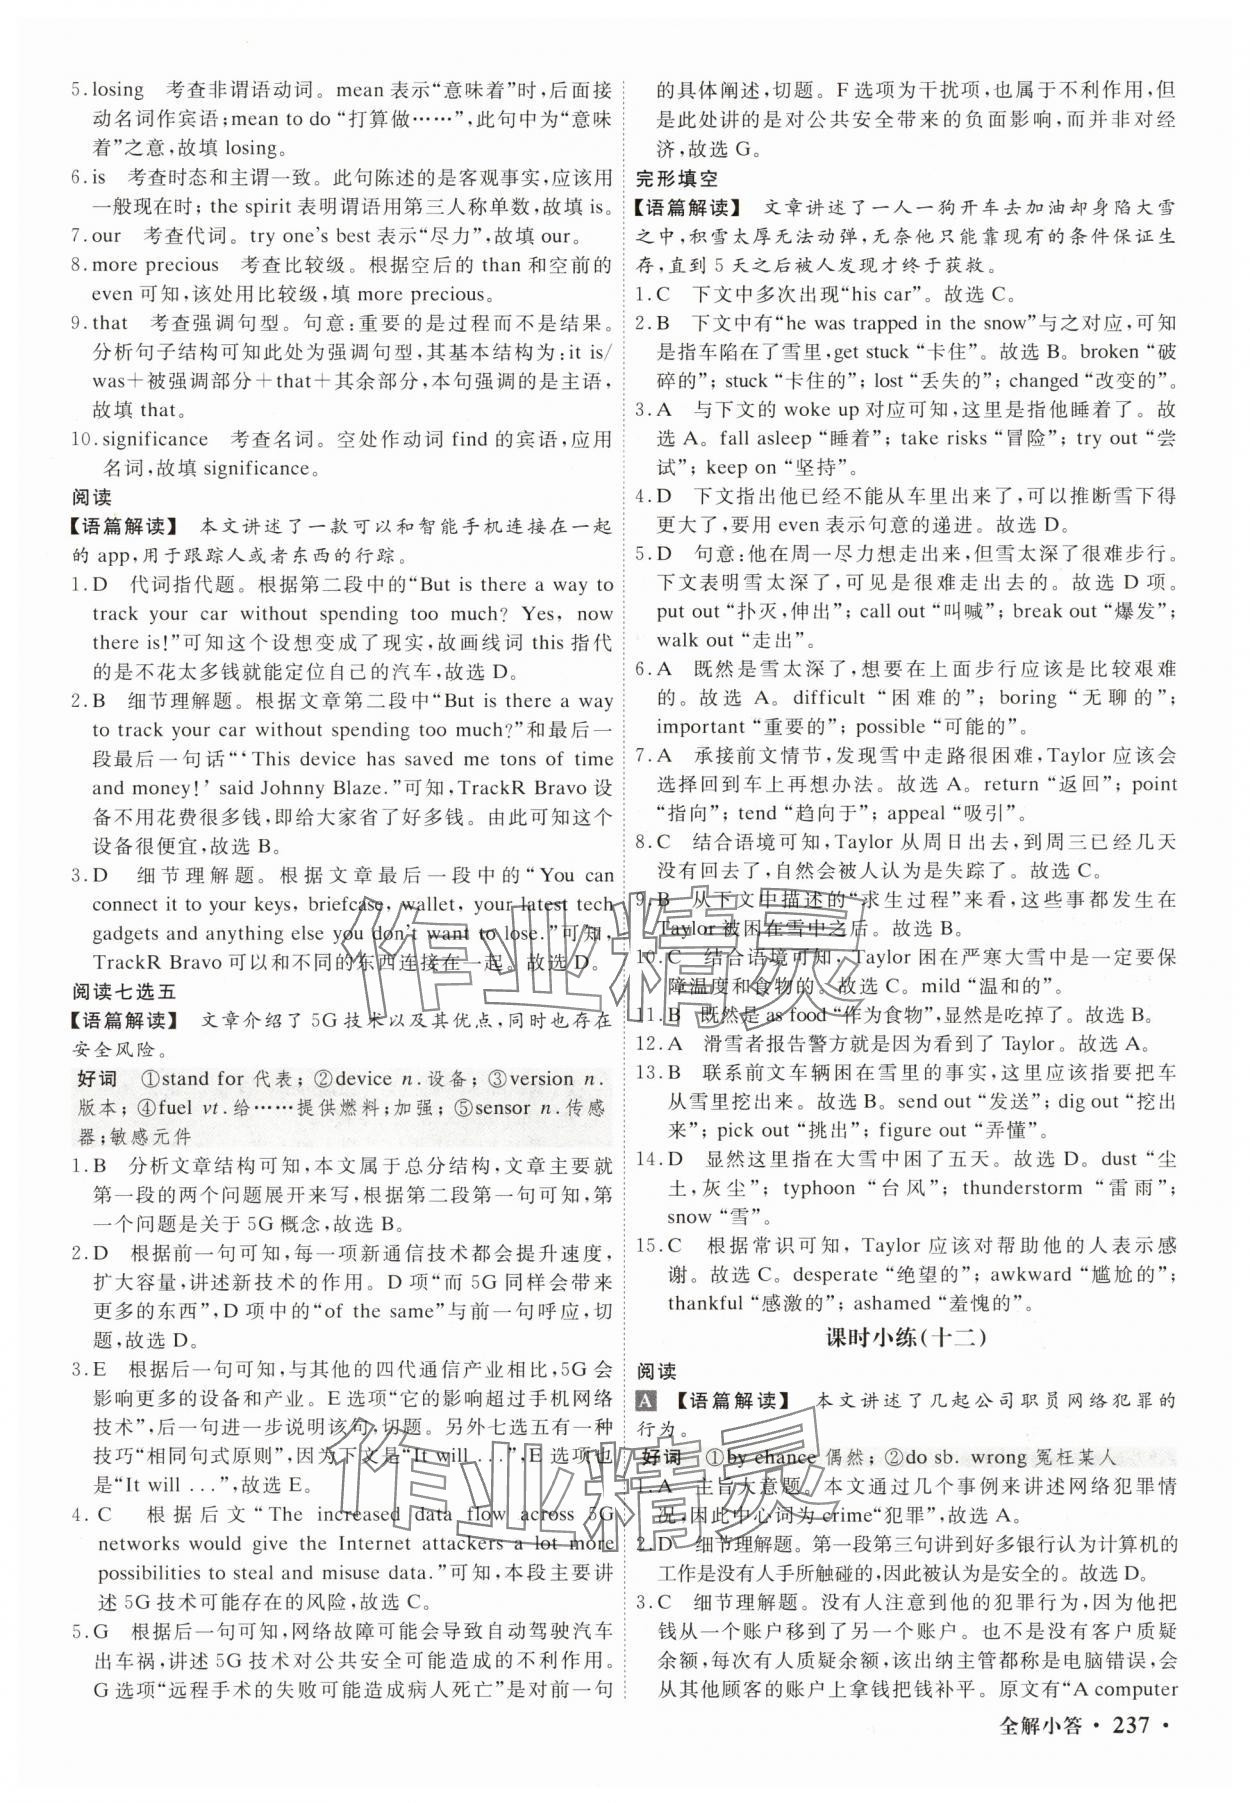 5. losing　考查非谓语动词。mean 表示“意味着”时,后面接
动名词作宾语;mean to do “打算做……”,此句中为“意味
着”之意,故填 losing。
6. is　考查时态和主谓一致。此句陈述的是客观事实,应该用
一般现在时; the spirit 表明谓语用第三人称单数,故填 is。
7. our　考查代词。try one's best 表示“尽力”,故填 our。
8. more precious　考查比较级。根据空后的 than 和空前的
even 可知,该处用比较级,填 more precious。
9. that　考查强调句型。句意:重要的是过程而不是结果。
分析句子结构可知此处为强调句型,其基本结构为:it is/
was+被强调部分+that+其余部分,本句强调的是主语,
故填 that。
10. significance　考查名词。空处作动词 find 的宾语,应用
名词,故填 significance。
阅读
【语篇解读】　本文讲述了一款可以和智能手机连接在一起
的 app,用于跟踪人或者东西的行踪。
1. D　代词指代题。根据第二段中的“But is there a way to
track your car without spending too much? Yes, now
there is!”可知这个设想变成了现实,故画线词 this 指代
的是不花太多钱就能定位自己的汽车,故选 D。
2. B　细节理解题。根据文章第二段中“But is there a way
to track your car without spending too much?”和最后一
段最后一句话“‘This device has saved me tons of time
and money!’ said Johnny Blaze.”可知,TrackR Bravo 设
备不用花费很多钱,即给大家省了好多钱。由此可知这个
设备很便宜,故选 B。
3. D　细节理解题。根据文章最后一段中的“You can
connect it to your keys, briefcase, wallet, your latest tech
gadgets and anything else you don't want to lose.”可知,
TrackR Bravo 可以和不同的东西连接在一起。故选 D。
阅读七选五
【语篇解读】　文章介绍了 5G 技术以及其优点,同时也存在
安全风险。
好词　①stand for 代表; ②device n. 设备; ③version n.
版本; ④fuel vt. 给……提供燃料;加强; ⑤sensor n. 传感
器;敏感元件
1. B　分析文章结构可知,本文属于总分结构,文章主要就
第一段的两个问题展开来写,根据第二段第一句可知,第
一个问题是关于 5G 概念,故选 B。
2. D　根据前一句可知,每一项新通信技术都会提升速度,
扩大容量,讲述新技术的作用。D 项“而 5G 同样会带来
更多的东西”,D 项中的“of the same”与前一句呼应,切
题,故选 D。
3. E　根据后一句可知,与其他的四代通信产业相比,5G 会
影响更多的设备和产业。E 选项“它的影响超过手机网络
技术”,后句进一步说明该句,切题。另外七选五有一种
技巧“相同句式原则”,因为下文是“It will ...”,E 选项也
是“It will ...”,故选 E。
4. C　根据后文“The increased data flow across 5G
networks would give the Internet attackers a lot more
possibilities to steal and misuse data.”可知,本段主要讲
述 5G 技术可能存在的风险,故选 C。
5. G　根据后一句可知,网络故障可能会导致自动驾驶汽车
出车祸,讲述 5G 技术对公共安全可能造成的不利作用。
G 选项“远程手术的失败可能造成病人死亡”是对前一句
的具体阐述,切题。F 选项为干扰项,也属于不利作用,但
是此处讲的是对公共安全带来的负面影响,而并非对经
济,故选 G。
完形填空
【语篇解读】　文章讲述了一人一狗开车去加油却身陷大雪
之中,积雪太厚无法动弹,无奈他只能靠现有的条件保证生
存,直到 5 天之后被人发现才终于获救。
1. C　下文中多次出现“his car”。故选 C。
2. B　下文中有“he was trapped in the snow”与之对应,可知
是指车陷在了雪里,get stuck “卡住”。故选 B。broken “破
碎的”; stuck “卡住的”; lost “丢失的”; changed “改变的”。
3. A　与下文的 woke up 对应可知,这里是指他睡着了。故
选 A。fall asleep “睡着”; take risks “冒险”; try out “尝
试”; keep on “坚持”。
4. D　下文指出他已经不能从车里出来了,可以推断雪下得
更大了,要用 even 表示句意的递进。故选 D。
5. D　句意:他在周一尽力想走出来,但雪太深了很难步行。
下文表明雪太深了,可见是很难走出去的。故选 D 项。
put out “扑灭,伸出”; call out “叫喊”; break out “爆发”;
walk out “走出”。
6. A　既然是雪太深了,想要在上面步行应该是比较艰难
的。故选 A。difficult “困难的”; boring “无聊的”;
important “重要的”; possible “可能的”。
7. A　承接前文情节,发现雪中走路很困难,Taylor 应该会
选择回到车上再想办法。故选 A。return “返回”; point
“指向”; tend “趋向于”; appeal “吸引”。
8. C　结合语境可知,Taylor 从周日出去,到周三已经几天
没有回去了,自然会被人认为是失踪了。故选 C。
9. B　从下文中描述的“求生过程”来看,这些事都发生在
Taylor 被困在雪中之后。故选 B。
10. C　结合语境可知,Taylor 困在严寒大雪中是一定要保
障温度和食物的。故选 C。mild “温和的”。
11. B　既然是 as food “作为食物”,显然是吃掉了。故选 B。
12. A　滑雪者报告警方就是因为看到了 Taylor。故选 A。
13. B　联系前文车辆困在雪里的事实,这里应该是指要把车
从雪里挖出来。故选 B。send out “发送”; dig out “挖出
来”; pick out “挑出”; figure out “弄懂”。
14. D　显然这里指在大雪中困了五天。故选 D。dust “尘
土,灰尘”; typhoon “台风”; thunderstorm “雷雨”;
snow “雪”。
15. C　根据常识可知, Taylor 应该对帮助他的人表示感
谢。故选 C。desperate “绝望的”; awkward “尴尬的”;
thankful “感激的”; ashamed “羞愧的”。
课时小练(十二)
阅读
A 【语篇解读】　本文讲述了几起公司职员网络犯罪的
行为。
好词　①by chance 偶然; ②do sb. wrong 冤枉某人
1. A　主旨大意题。本文通过几个事例来讲述网络犯罪情
况,因此中心词为 crime“犯罪”,故选 A。
2. D　细节理解题。第一段第三句讲到好多银行认为计算机的
工作是没有人手所触碰的,因此被认为是安全的。故选 D。
3. C　细节理解题。没有人注意到他的犯罪行为,因为他把
钱从一个账户移到了另一个账户。也不是没有客户质疑
余额,每次有人质疑余额,该出纳主管都称是电脑错误,会
从其他顾客的账户上拿钱把钱补平。原文有“A computer
全解小答 · 237 ·
作业精灵
作业精灵